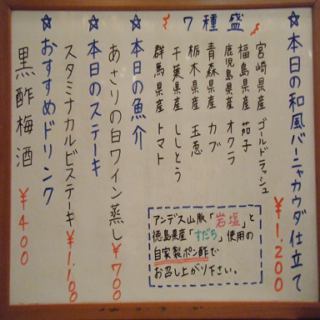 ☆本日の和風バーニャカウダ仕立て ¥1.200
〈7種盛〉
宮崎県産 ゴールドラッシュ
福島県産 茄子
鹿児島県産 オクラ
青森県産 カブ
栃木県産 玉恵
千葉県産 ししとう
群馬県産 トマト
アンデス山脈「岩塩」と
徳島県産「すだち」使用の
自家製ポン酢で
お召し上がり下さい。
☆本日の魚介
あさりの白ワイン蒸し ¥700
☆本日のステーキ
スタミナカルビステーキ ¥1.100
☆おすすめドリンク
黒酢梅酒 ¥400